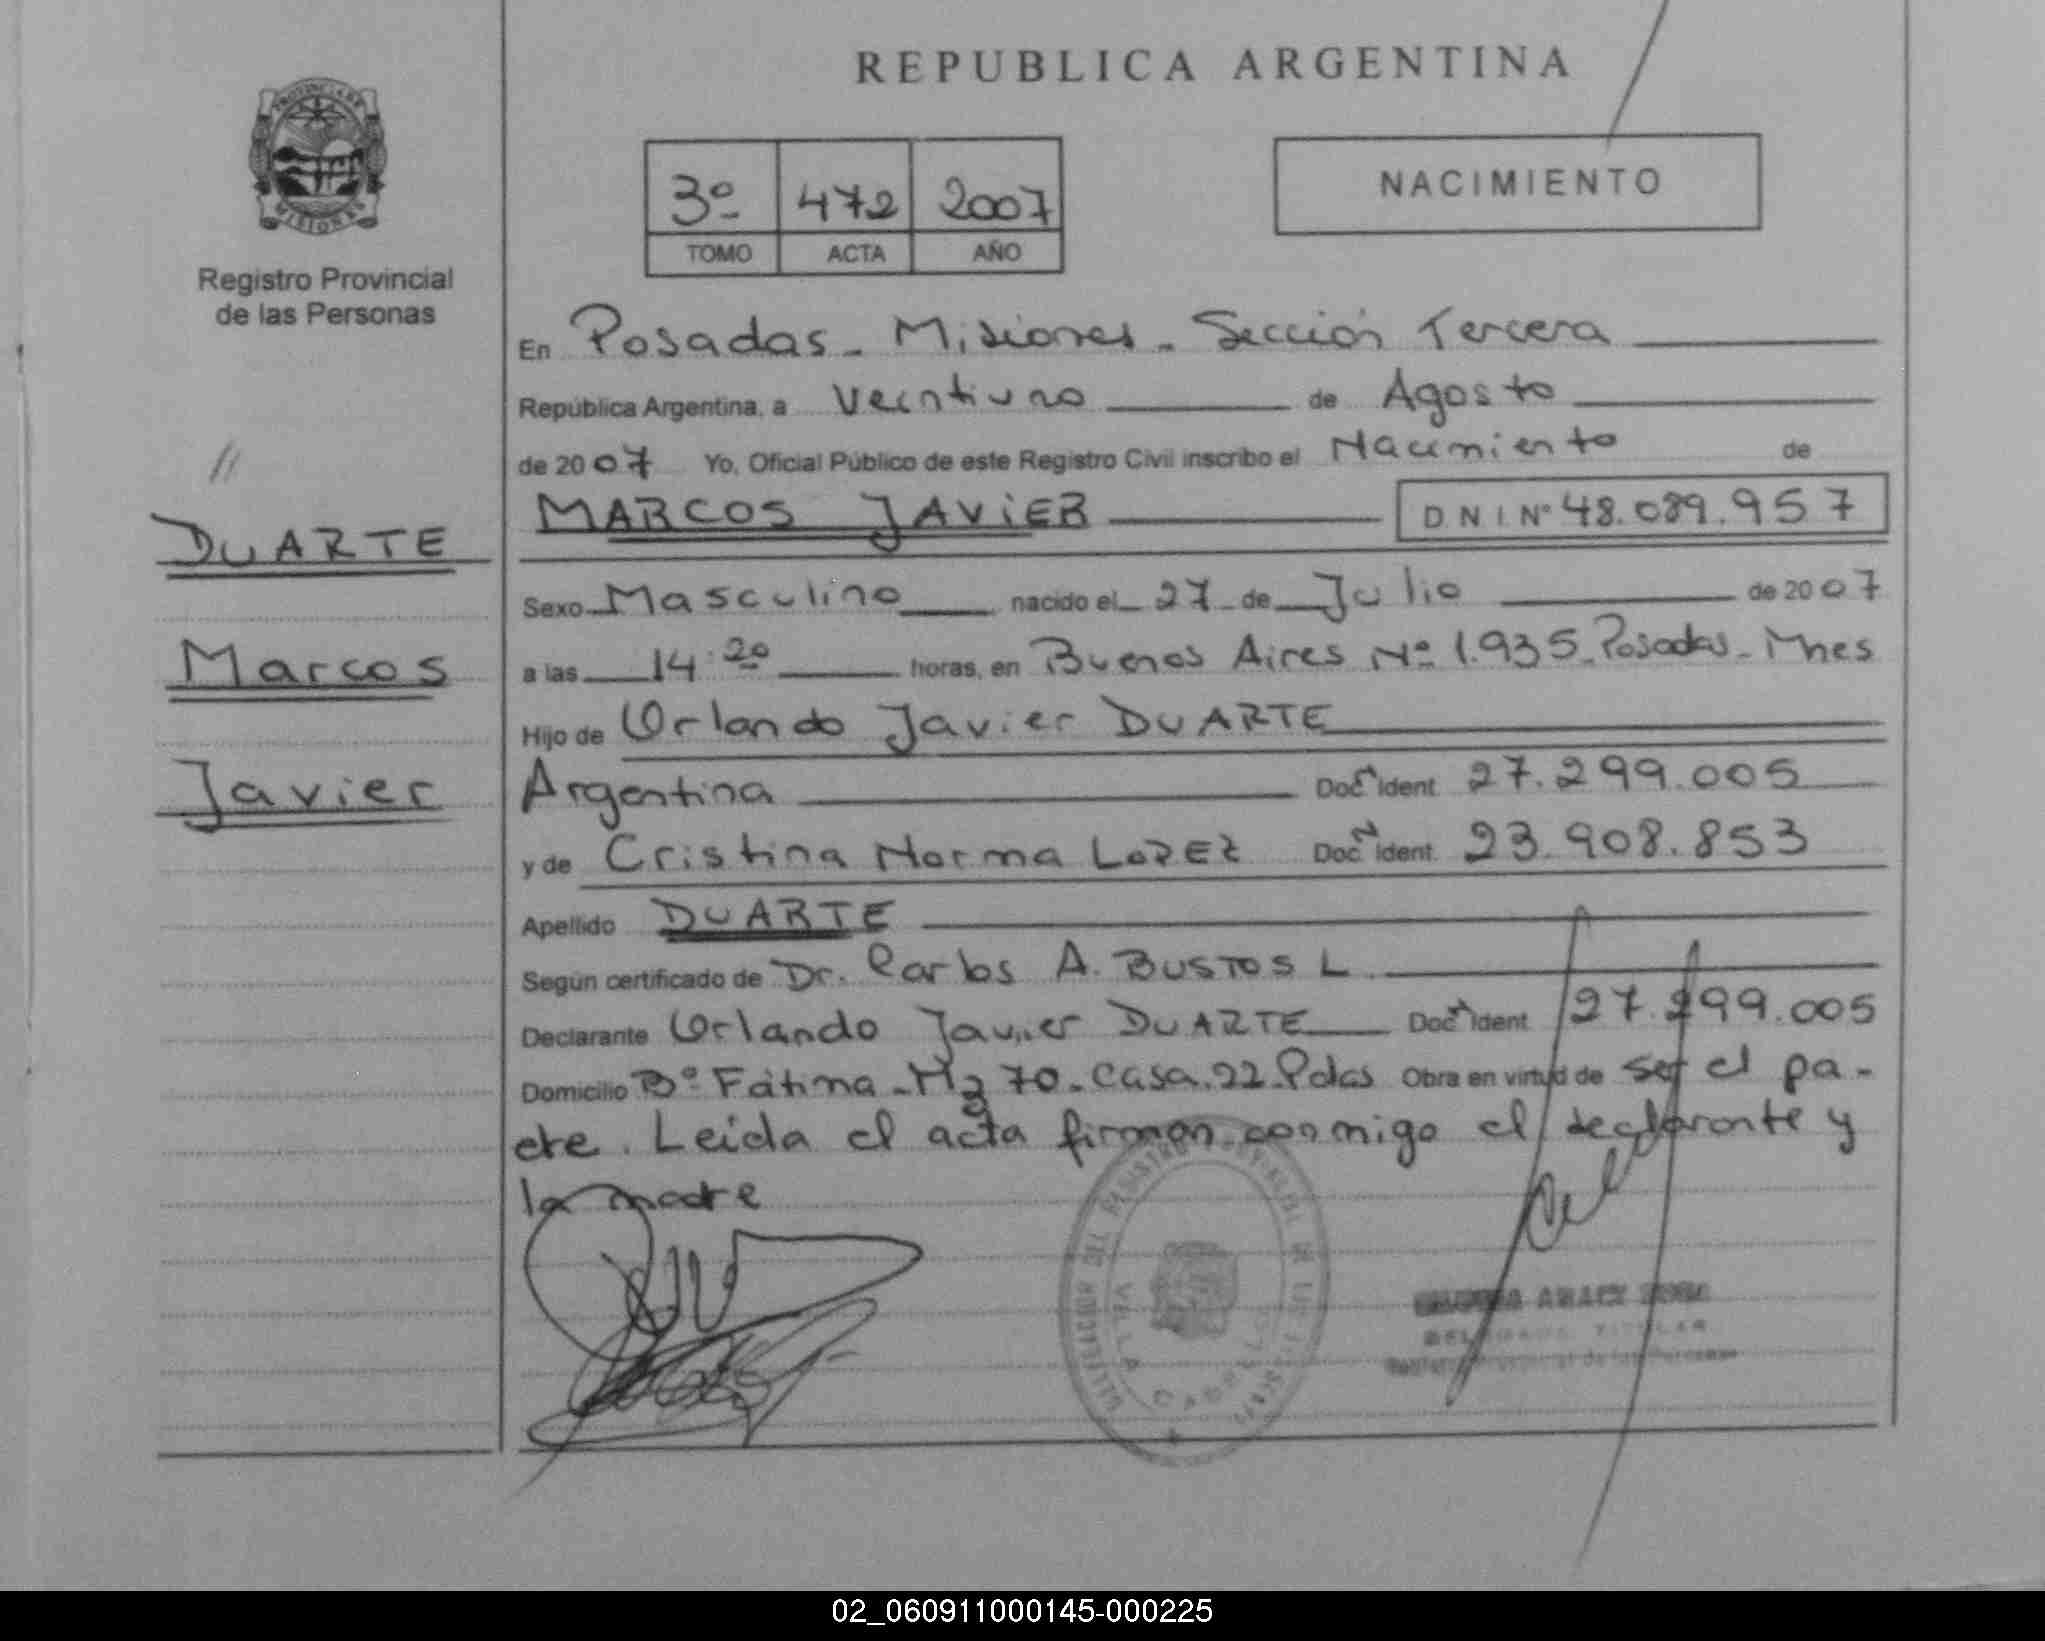 REPUBLICA ARGENTINA
PROVINCIA DE
MISIONES
Registro Provincial
de las Personas
3º 472 2007
TOMO ACTA AÑO
NACIMIENTO
En Posadas - Misiones - Sección Tercera
República Argentina, a Veintiuno de Agosto
de 2007 Yo, Oficial Público de este Registro Civil inscribo el Nacimiento de
MARCOS JAVIER D N I Nº 48.089.957
DUARTE
Marcos
Javier
Sexo Masculino nacido el 27 de Julio de 2007
a las 14:20 horas, en Buenos Aires Nº 1.935 - Posadas - Mnes
Hijo de Orlando Javier DUARTE
Argentina Doc Ident 27.299.005
y de Cristina Norma LOPEZ Doc Ident. 23.908.853
Apellido DUARTE
Según certificado de Dr. Carlos A. BUSTOS L.
Declarante Orlando Javier DUARTE Doc Ident 27.299.005
Domicilio Bº Fátima - Mz 70 - Casa 22 - Pdas Obra en virtud de ser el pa-
dre. Leida el acta firman conmigo el declarante y
la madre
DELEGACION DEL REGISTRO PROVINCIAL DE LAS PERSONAS
VILLA CABELLO
TITULAR
Registro Provincial de las Personas
02_060911000145-000225